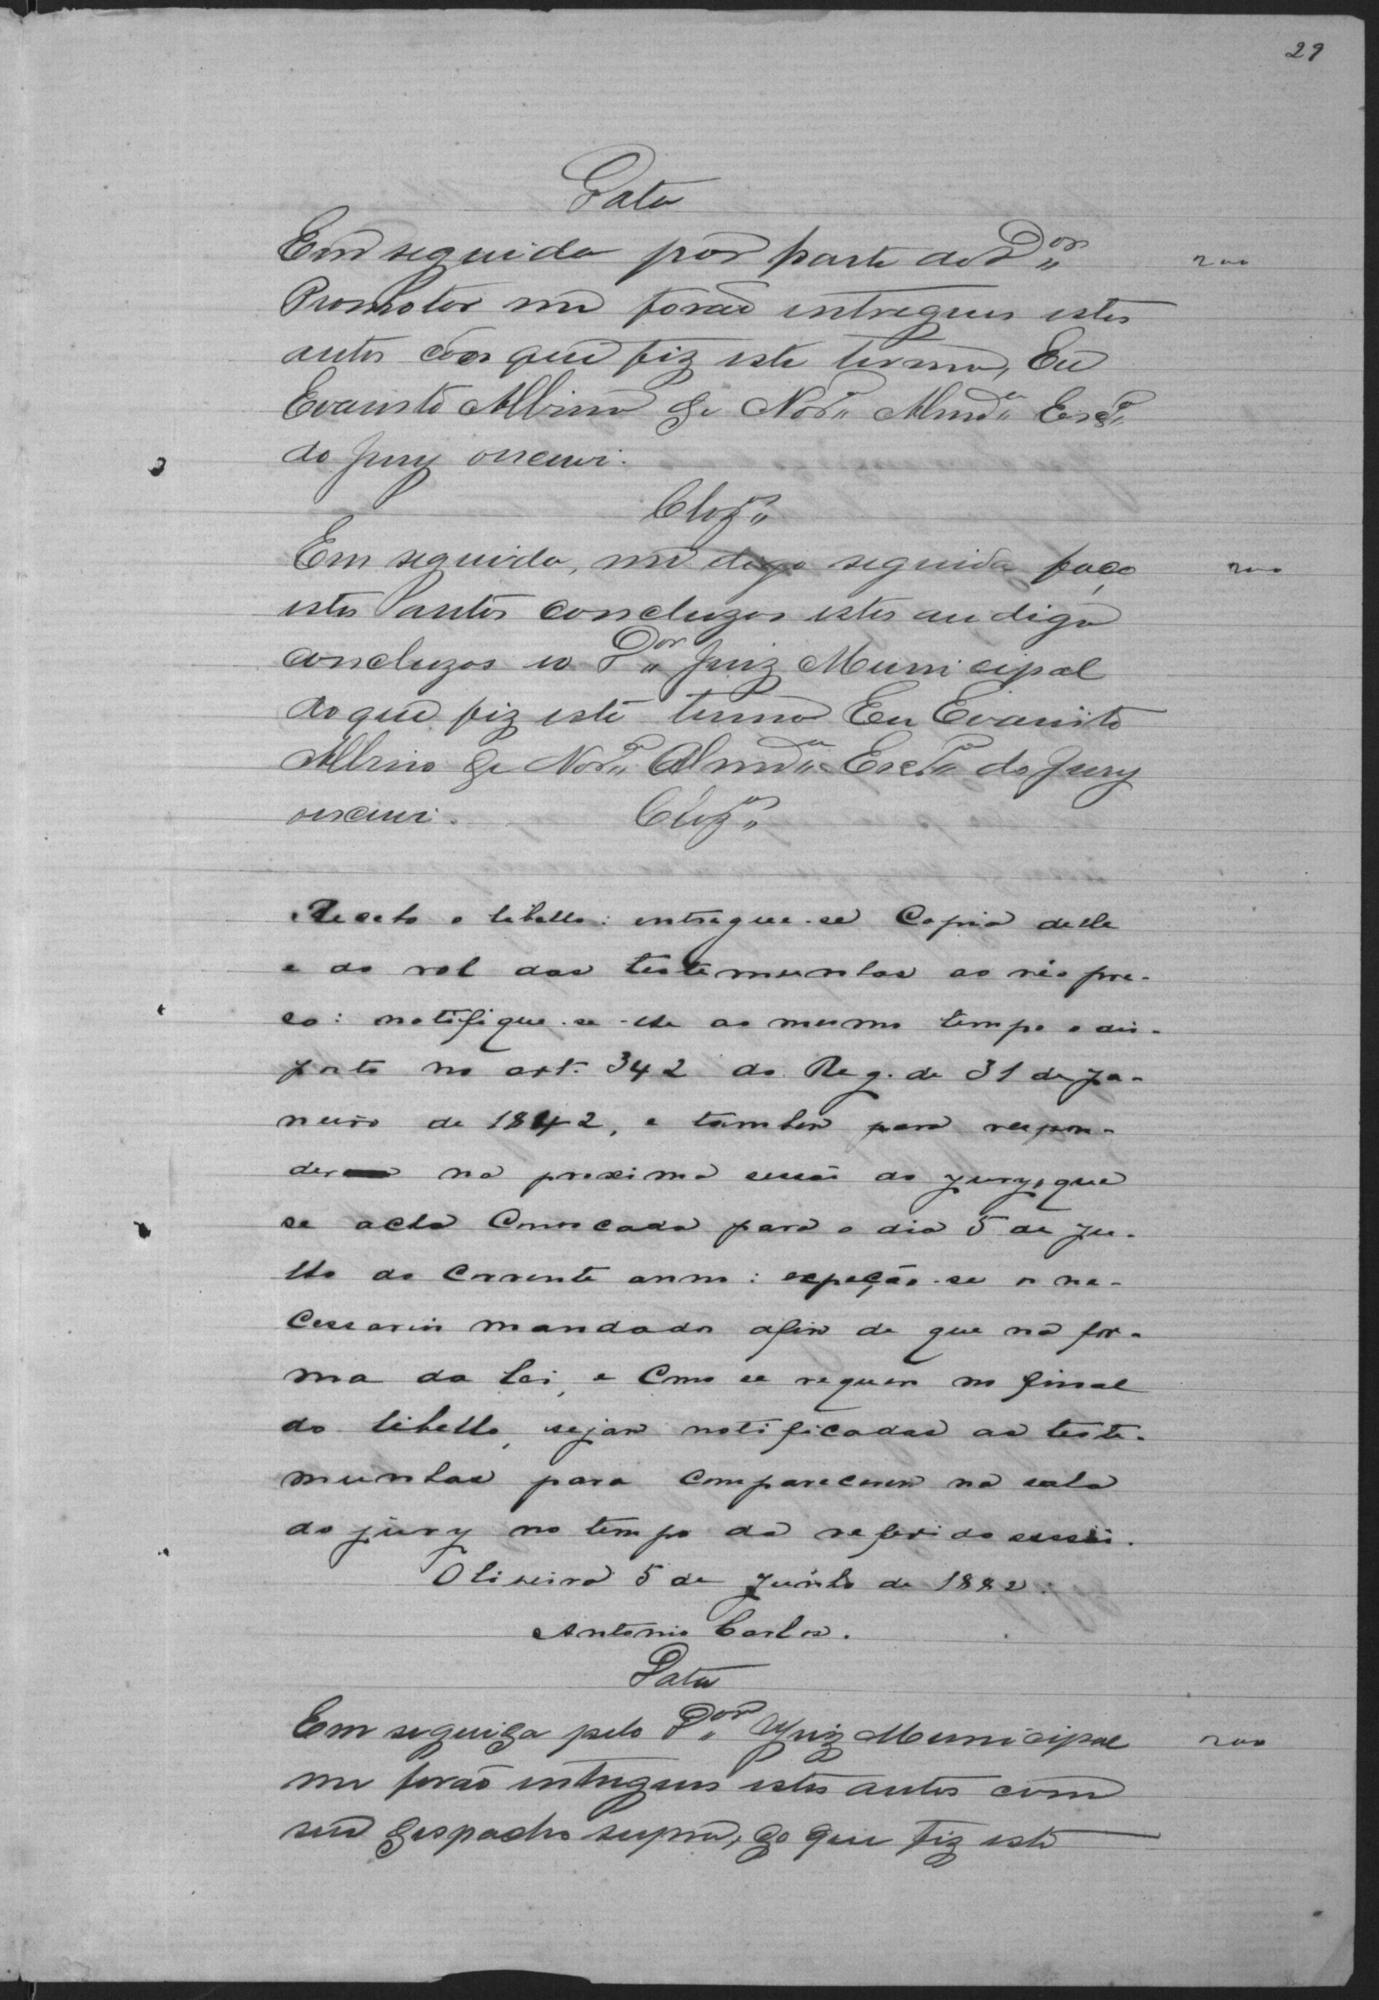 29
Data
Em seguida por parte do D.or
200
Promotor me forão intregues estes
autos do que fiz este termo, Eu
Evaristo Albino de Nor.a Almd.a Escr.m
do Jury oescrevi.
Clz.os
Em seguida, me digo seguida faço
200
estes autos concluzos estes au digo
concluzos ao D.or Juiz Municipal
do que fiz este termo Eu Evaristo
Albino de Nor.a Almd.a Escr.m do Jury
oescrevi. Clz.os
Receto o libello: entregue-se copia delle
e do rol das testemunhas ao réo pre-
so: notifique-se-lhe ao mesmo tempo o dis-
posto no art. 342 do Reg. de 31 de Ja-
neiro de 1842, e tambem para respon-
der na proxima sessão do jury, que
se acha convocada para o dia 5 de Ju-
lho do corrente anno: expeção-se os ne-
cessarios mandados afim de que na for-
ma da lei, e como se requer no final
do libello, sejam notificadas as teste-
munhas para comparecerem na sala
do jury no tempo da referida sessão.
Oliveira 5 de Junho de 1882.
Antonio Carlos.
Data
Em seguida pelo D.or Juiz Municipal
200
me forão intregues estes autos com
seu despacho supra, do que fiz este